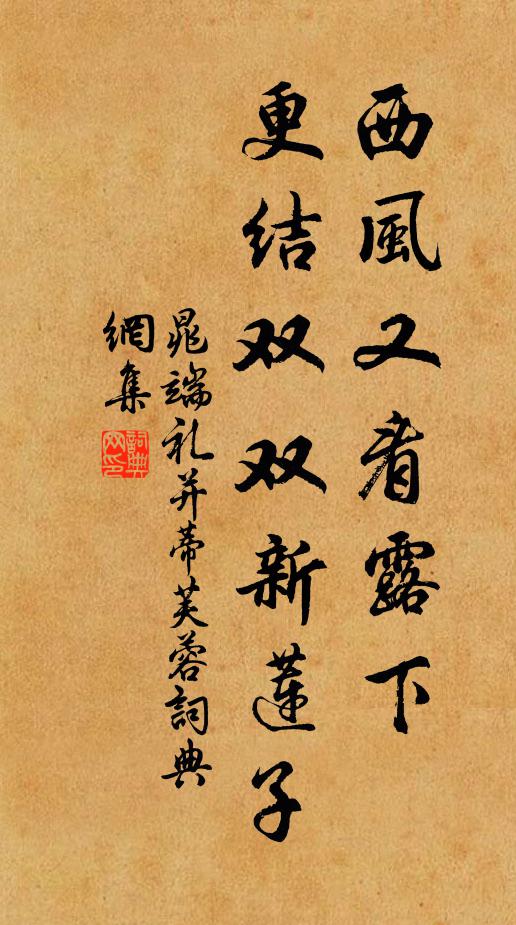 西風又看露下
更结双双新莲子
晁端礼并蒂芙蓉詞典
網集
詞典网印